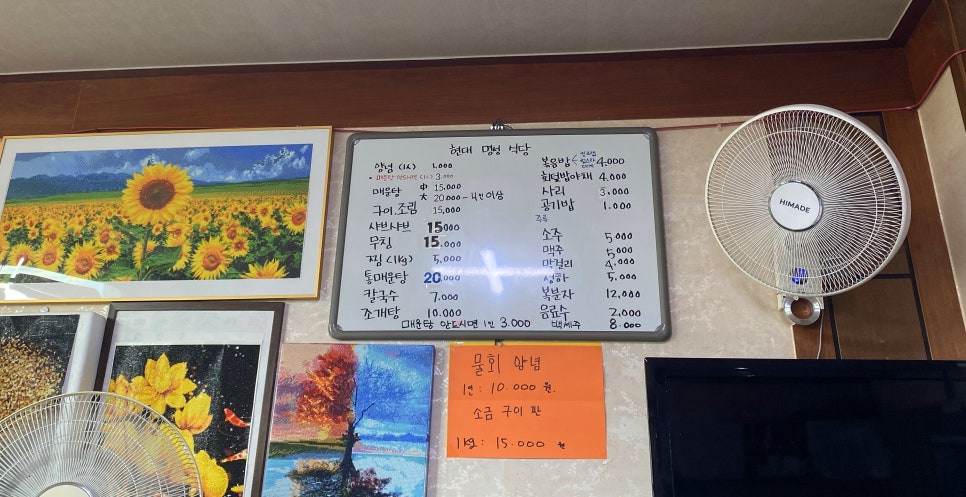 현대 명성 식당
양념 (1人) 1,000
• 매운탕 안드시면 (1人) 3,000
매운탕 中 15,000
大 20,000 - 4인 이상
구이, 조림 15,000
샤브샤브 15,000
무침 15,000
찜 (1kg) 5,000
통매운탕 20,000
칼국수 7,000
조개탕 10,000
매운탕 안드시면 1인 3,000
볶음밥 4,000
회덮밥야채 4,000
사리 3,000
공기밥 1,000
주류
소주 5,000
맥주 5,000
막걸리 4,000
청하 5,000
복분자 12,000
음료수 2,000
백세주 8,000
물회 양념
1인 : 10.000 원.
소금 구이 판
1kg : 15.000 원
HIMADE